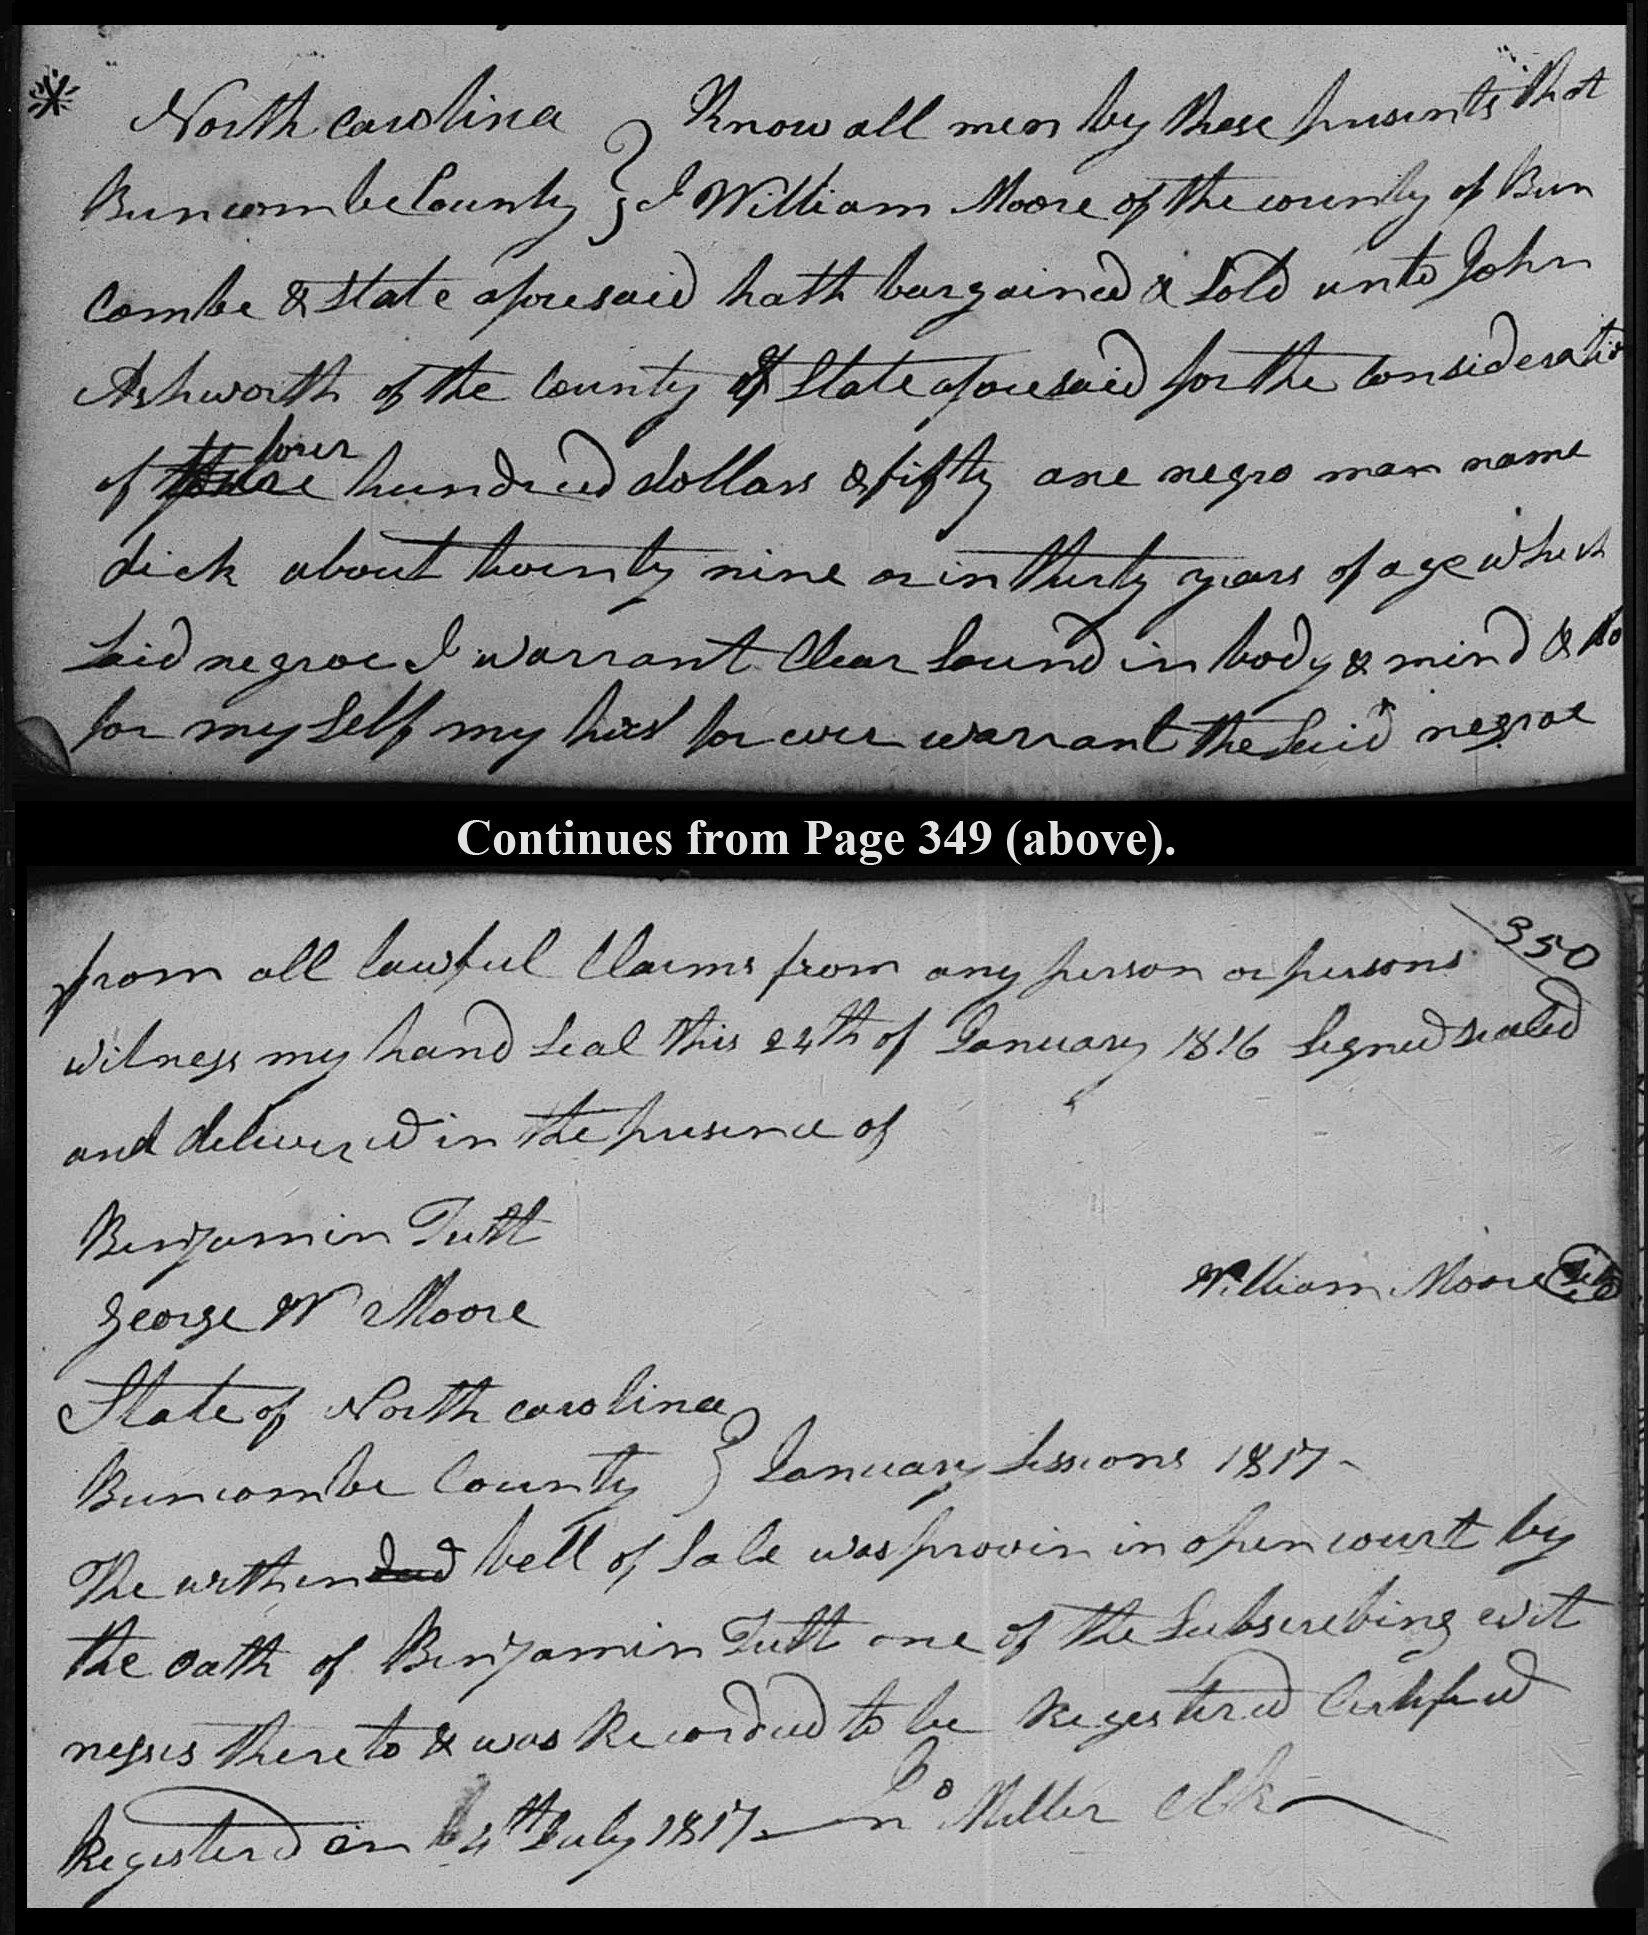 North carolina } Know all men by these presents that
Buncombe County } I William Moore of the county of Bun
combe & State aforesaid hath bargained & Sold unto John
Ashworth of the County & State aforesaid for the consideratio
of four hundred dollars & fifty one negro man name
dick about twenty nine or in thirty years of age which
Said negroe I warrant Clear Sound in body & mind & do
for my Self my heirs for ever warrant the Said negroe
Continues from Page 349 (above).
350
from all lawful Claims from any person or persons
witness my hand Seal this 24th of January 1816 Signed sealed
and delivered in the presence of
Benjamin Tutt
William Moore
George W Moore
State of North carolina
Buncombe County } January Sessions 1817
The within bell of Sale was provin in open court by
the oath of Benjamin Tutt one of the Subscribing wit
nesses thereto & was Recorded to be Registered Certified
Registerd on 4th July 1817 Jno Miller Clk